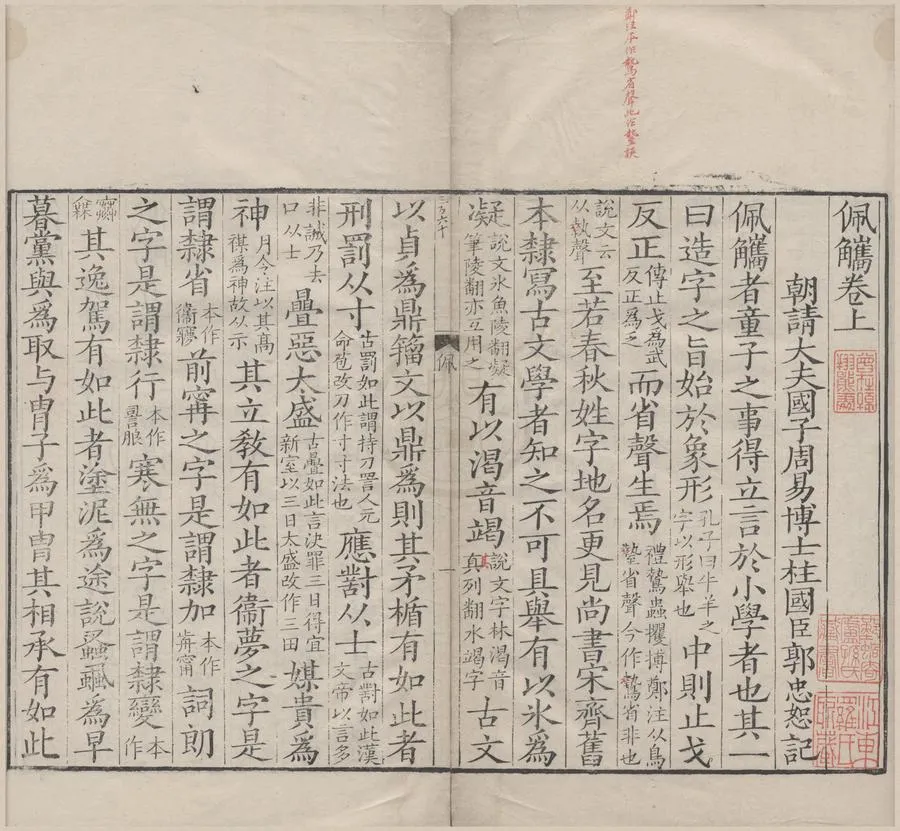 佩觿卷上
朝請大夫國子周易博士柱國臣郭忠恕記
佩觿者童子之事得立言於小學者也其一
曰造字之旨始於象形孔子曰牛羊之字以形舉也中則止戈
反正傳止戈為武反正為乏而省聲生焉禮鷙蟲攫搏鄭注从鳥鷙省聲今作鷙省非也
說文云从執聲至若春秋姓字地名更見尚書宋齊舊
本隸寫古文學者知之不可具舉有以氷為
凝說文氷魚陵翻凝筆陵翻亦互用之有以渴音竭說文字林渴音其列翻水竭字古文
以貞為鼎籀文以鼎為則其矛楯有如此者
刑罰从寸古罰如此謂持刀詈人元命苞改刀作寸寸法也應對从士古對如此漢文帝以言多
非誠乃去口从士疊惡太盛古疊如此言決罪三日得宜新室以三日太盛改作三田媒貴為
神月令注以其高禖為神故从示其立敎有如此者衞夢之字是
謂隸省本作衞㝱前寗之字是謂隸加本作歬甯詞朗
之字是謂隸行本作䛐朖寒無之字是謂隸變本作
其逸駕有如此者塗泥為途說蝨䖝為早
暮黨與為取与冑子為甲冑其相承有如此
佩
一
三百六十
鄭注本作鷙省聲此作